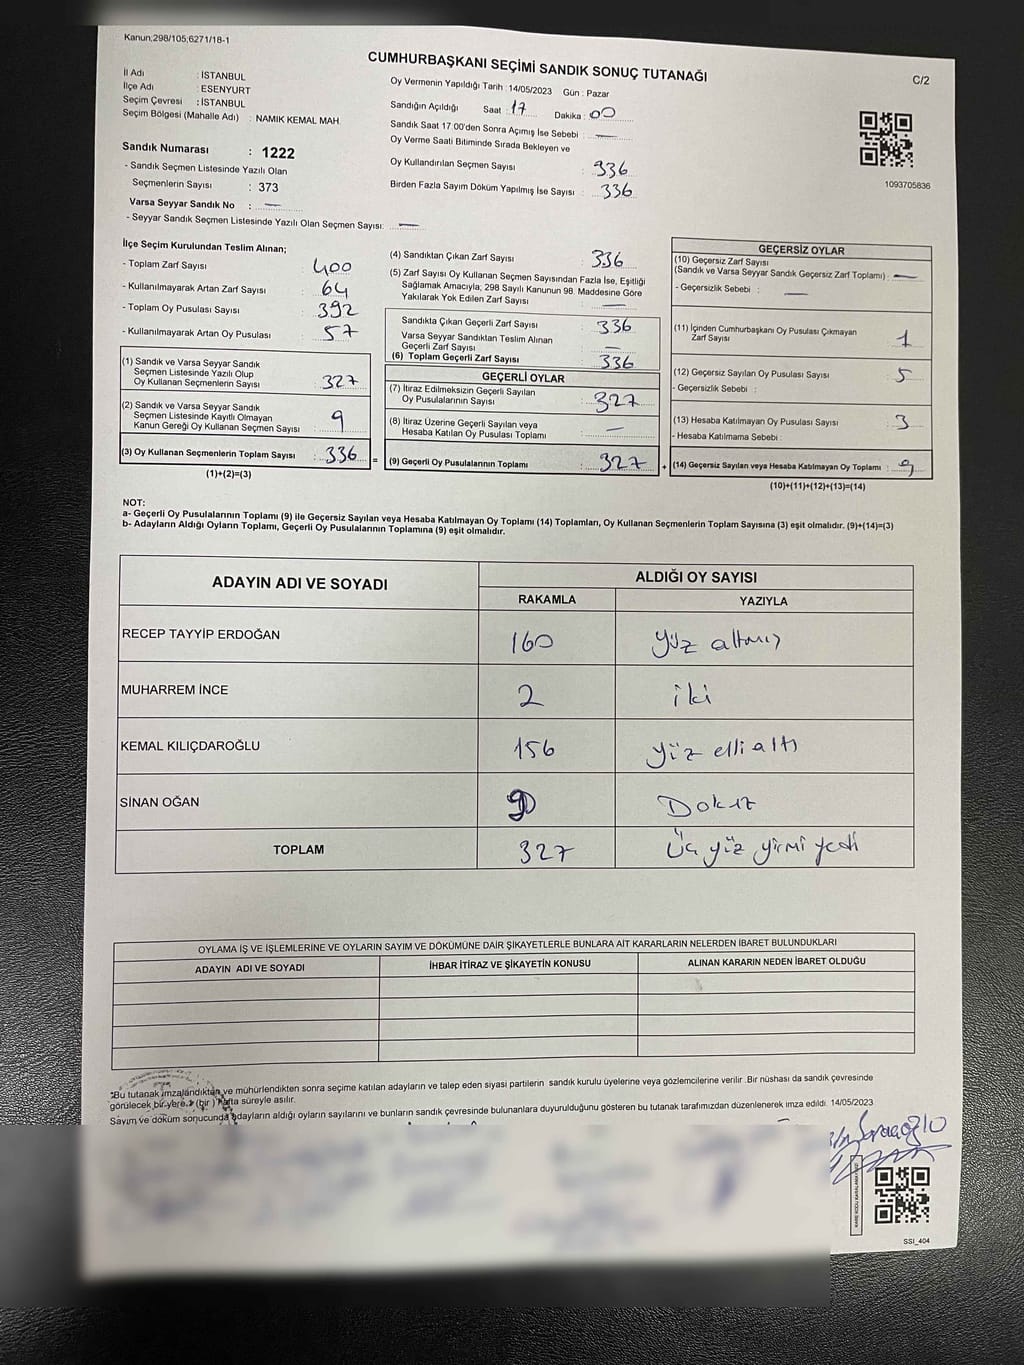 Kanun;298/105;6271/18-1
CUMHURBAŞKANI SEÇİMİ SANDIK SONUÇ TUTANAĞI
C/2
İl Adı : İSTANBUL
İlçe Adı : ESENYURT
Seçim Çevresi : İSTANBUL
Seçim Bölgesi (Mahalle Adı) : NAMIK KEMAL MAH.
Oy Vermenin Yapıldığı Tarih : 14/05/2023 Gün : Pazar
Sandığın Açıldığı Saat : 17 Dakika : 00
Sandık Saat 17:00'den Sonra Açımış İse Sebebi : —
Oy Verme Saati Bitiminde Sırada Bekleyen ve
Oy Kullandırılan Seçmen Sayısı : 336
Birden Fazla Sayım Döküm Yapılmış İse Sayısı : 336
1093705836
Sandık Numarası : 1222
- Sandık Seçmen Listesinde Yazılı Olan
Seçmenlerin Sayısı : 373
Varsa Seyyar Sandık No : —
- Seyyar Sandık Seçmen Listesinde Yazılı Olan Seçmen Sayısı: —
İlçe Seçim Kurulundan Teslim Alınan;
- Toplam Zarf Sayısı : 400
- Kullanılmayarak Artan Zarf Sayısı : 64
- Toplam Oy Pusulası Sayısı : 392
- Kullanılmayarak Artan Oy Pusulası : 57
(1) Sandık ve Varsa Seyyar Sandık
Seçmen Listesinde Yazılı Olup
Oy Kullanan Seçmenlerin Sayısı : 327
(2) Sandık ve Varsa Seyyar Sandık
Seçmen Listesinde Kayıtlı Olmayan
Kanun Gereği Oy Kullanan Seçmen Sayısı : 9
(3) Oy Kullanan Seçmenlerin Toplam Sayısı : 336 =
(1)+(2)=(3)
(4) Sandıktan Çıkan Zarf Sayısı : 336
(5) Zarf Sayısı Oy Kullanan Seçmen Sayısından Fazla İse, Eşitliği
Sağlamak Amacıyla; 298 Sayılı Kanunun 98. Maddesine Göre
Yakılarak Yok Edilen Zarf Sayısı : —
Sandıkta Çıkan Geçerli Zarf Sayısı : 336
Varsa Seyyar Sandıktan Teslim Alınan
Geçerli Zarf Sayısı : —
(6) Toplam Geçerli Zarf Sayısı : 336
GEÇERLİ OYLAR
(7) İtiraz Edilmeksizin Geçerli Sayılan
Oy Pusulalarının Sayısı : 327
(8) İtiraz Üzerine Geçerli Sayılan veya
Hesaba Katılan Oy Pusulası Toplamı : —
(9) Geçerli Oy Pusulalarının Toplamı : 327 +
GEÇERSİZ OYLAR
(10) Geçersiz Zarf Sayısı
(Sandık ve Varsa Seyyar Sandık Geçersiz Zarf Toplamı) : —
- Geçersizlik Sebebi : —
(11) İçinden Cumhurbaşkanı Oy Pusulası Çıkmayan
Zarf Sayısı : 1
(12) Geçersiz Sayılan Oy Pusulası Sayısı : 5
- Geçersizlik Sebebi :
(13) Hesaba Katılmayan Oy Pusulası Sayısı : 3
- Hesaba Katılmama Sebebi :
(14) Geçersiz Sayılan veya Hesaba Katılmayan Oy Toplamı : 9
(10)+(11)+(12)+(13)=(14)
NOT:
a- Geçerli Oy Pusulalarının Toplamı (9) ile Geçersiz Sayılan veya Hesaba Katılmayan Oy Toplamı (14) Toplamları, Oy Kullanan Seçmenlerin Toplam Sayısına (3) eşit olmalıdır. (9)+(14)=(3)
b- Adayların Aldığı Oyların Toplamı, Geçerli Oy Pusulalarının Toplamına (9) eşit olmalıdır.
ADAYIN ADI VE SOYADI
ALDIĞI OY SAYISI
RAKAMLA YAZIYLA
RECEP TAYYİP ERDOĞAN 160 yüz altmış
MUHARREM İNCE 2 iki
KEMAL KILIÇDAROĞLU 156 yüz elli altı
SİNAN OĞAN 9 Dokuz
TOPLAM 327 Üç yüz yirmi yedi
OYLAMA İŞ VE İŞLEMLERİNE VE OYLARIN SAYIM VE DÖKÜMÜNE DAİR ŞİKAYETLERLE BUNLARA AİT KARARLARIN NELERDEN İBARET BULUNDUKLARI
ADAYIN ADI VE SOYADI İHBAR İTİRAZ VE ŞİKAYETİN KONUSU ALINAN KARARIN NEDEN İBARET OLDUĞU
*Bu tutanak imzalandıktan ve mühürlendikten sonra seçime katılan adayların ve talep eden siyasi partilerin sandık kurulu üyelerine veya gözlemcilerine verilir .Bir nüshası da sandık çevresinde
görülecek bir yere (bir) hafta süreyle asılır.
Sayım ve döküm sonucunda adayların aldığı oyların sayılarını ve bunların sandık çevresinde bulunanlara duyurulduğunu gösteren bu tutanak tarafımızdan düzenlenerek imza edildi. 14/05/2023
SSI_404